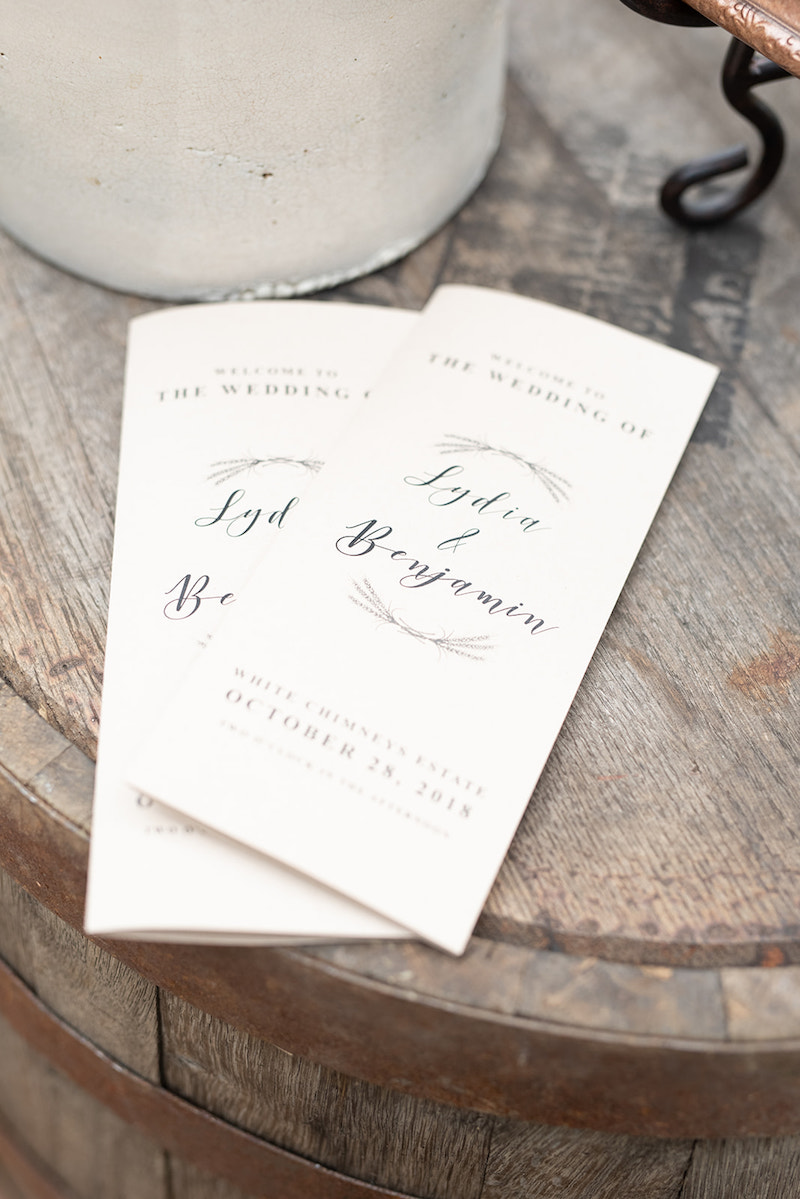 WELCOME TO
THE WEDDING OF
Lydia
&
Benjamin
WHITE CHIMNEYS ESTATE
OCTOBER 28, 2018
TWO O'CLOCK IN THE AFTERNOON
WELCOME TO
THE WEDDING
Lyd
Be